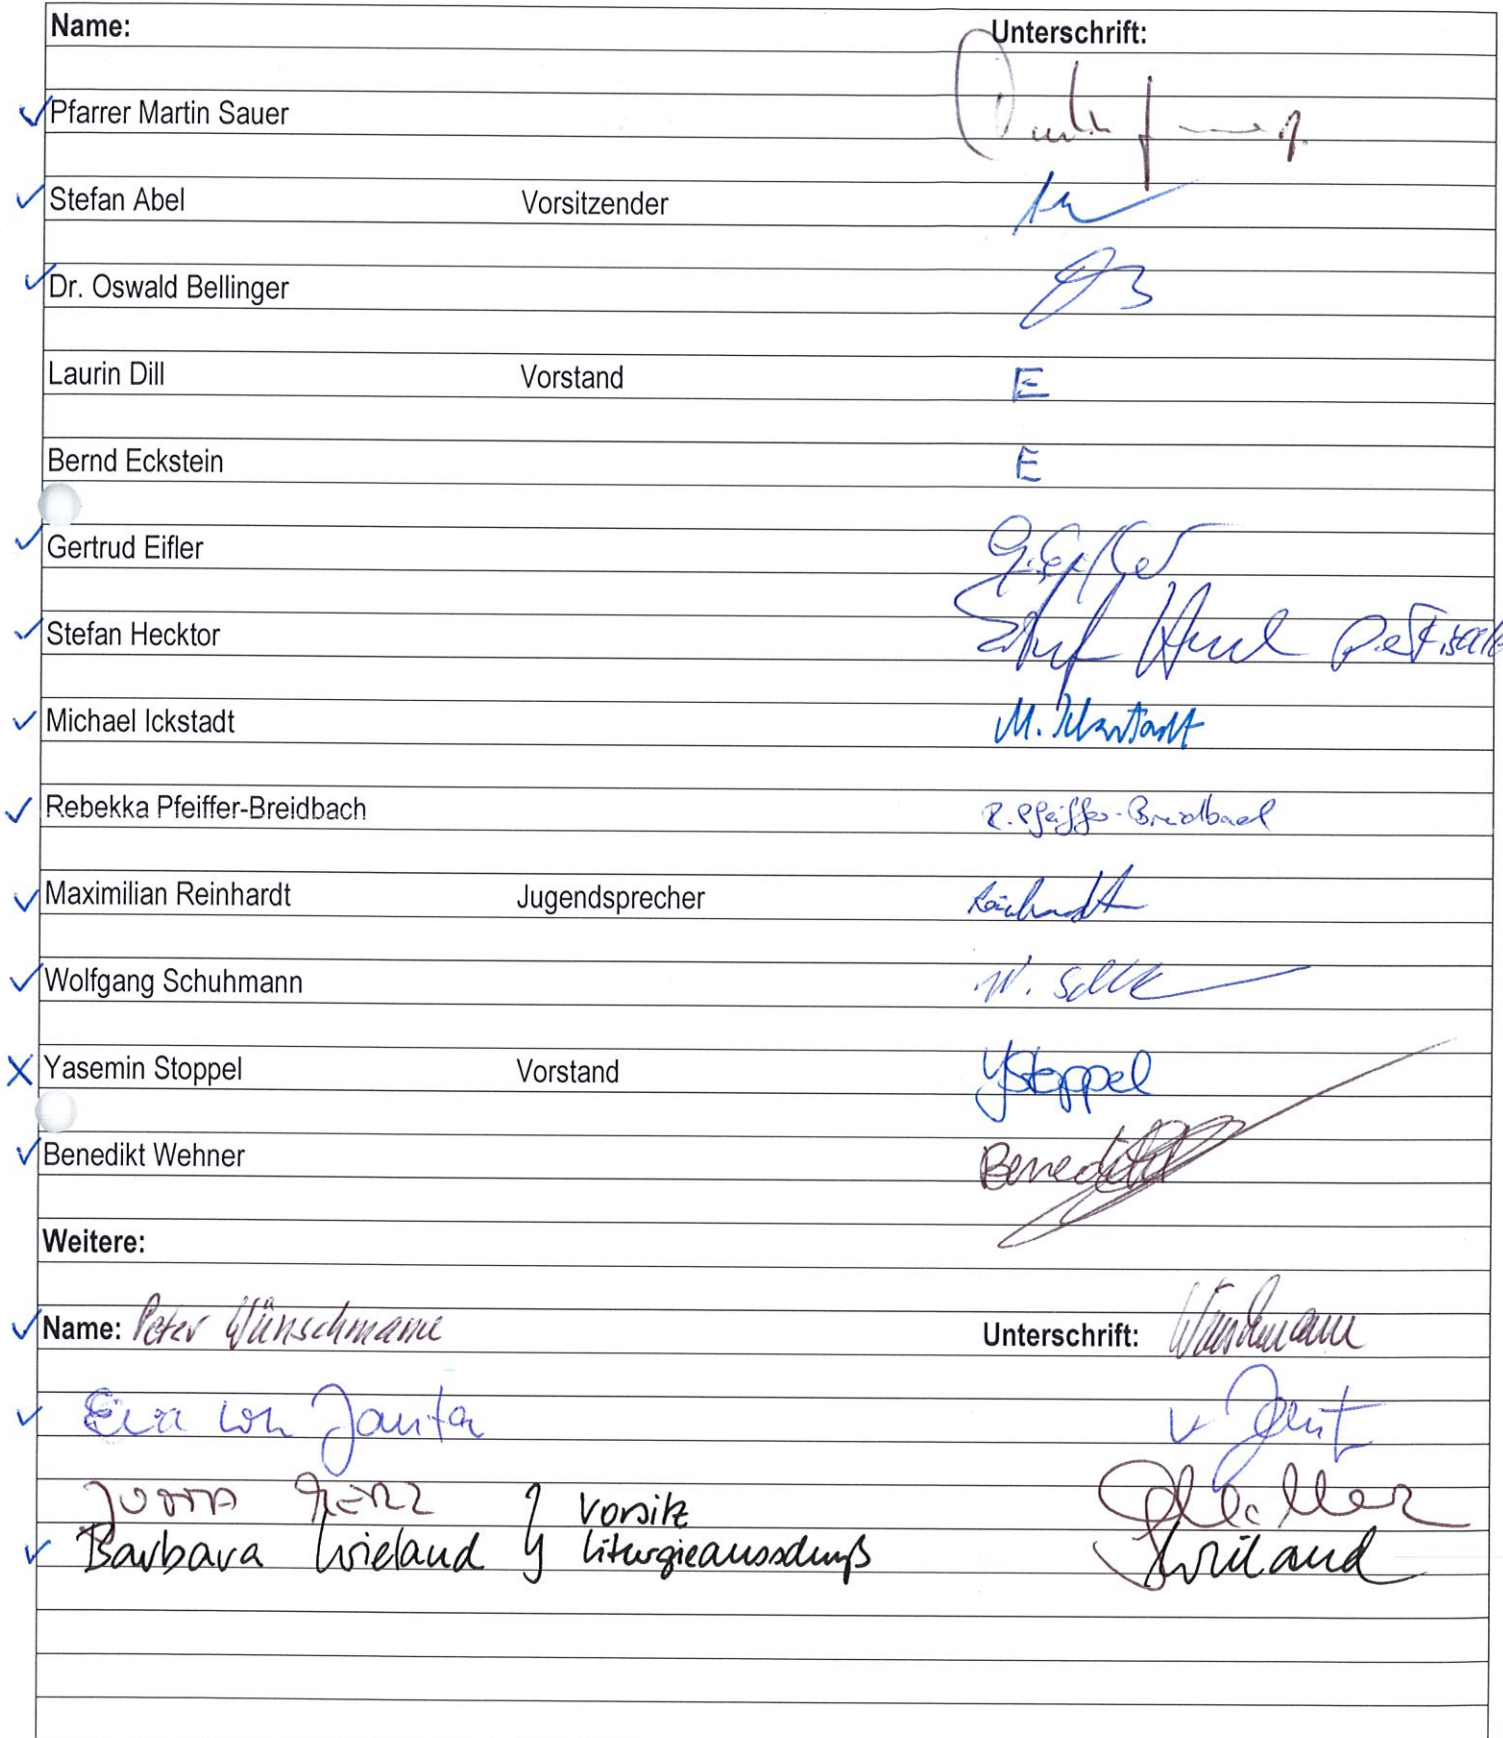 Name: Unterschrift:
Pfarrer Martin Sauer
Stefan Abel Vorsitzender
Dr. Oswald Bellinger
Laurin Dill Vorstand E
Bernd Eckstein E
Gertrud Eifler
Stefan Hecktor
Michael Ickstadt M. Ickstadt
Rebekka Pfeiffer-Breidbach R. Pfeiffer-Breidbach
Maximilian Reinhardt Jugendsprecher Reinhardt
Wolfgang Schuhmann W.
Yasemin Stoppel Vorstand YStoppel
Benedikt Wehner Benedikt
Weitere:
Name: Peter Wünschmann Unterschrift: Wünschmann
Eva von Janta
Jutta Vorsitz
Barbara Wieland Liturgieausschuß Wieland